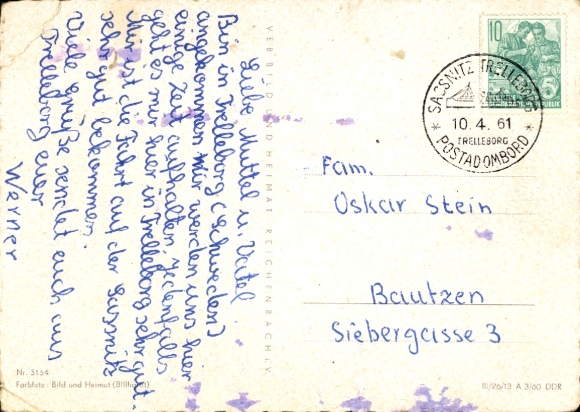 Liebe Muttel u. Vatel
Bin in Trelleborg (Schweden)
angekommen, wir werden uns hier
einige Zeit aufhalten, jedenfalls
geht es mir hier in Trelleborg sehr gut.
Mir ist die Fahrt auf der Sassnitz
sehr gut bekommen.
Viele Grüße sendet euch aus
Trelleborg euer
Werner
VEB BILD UND HEIMAT REICHENBACH I. V.
10
5
SASSNITZ TRELLEBORG
10.4.61
TRELLEBORG
* POSTAD OMBORD *
Fam.
Oskar Stein
Bautzen
Siebergasse 3
Nr. 5164
Farbfoto: Bild und Heimat (Billhardt)
III/26/13 A 3/60 DDR